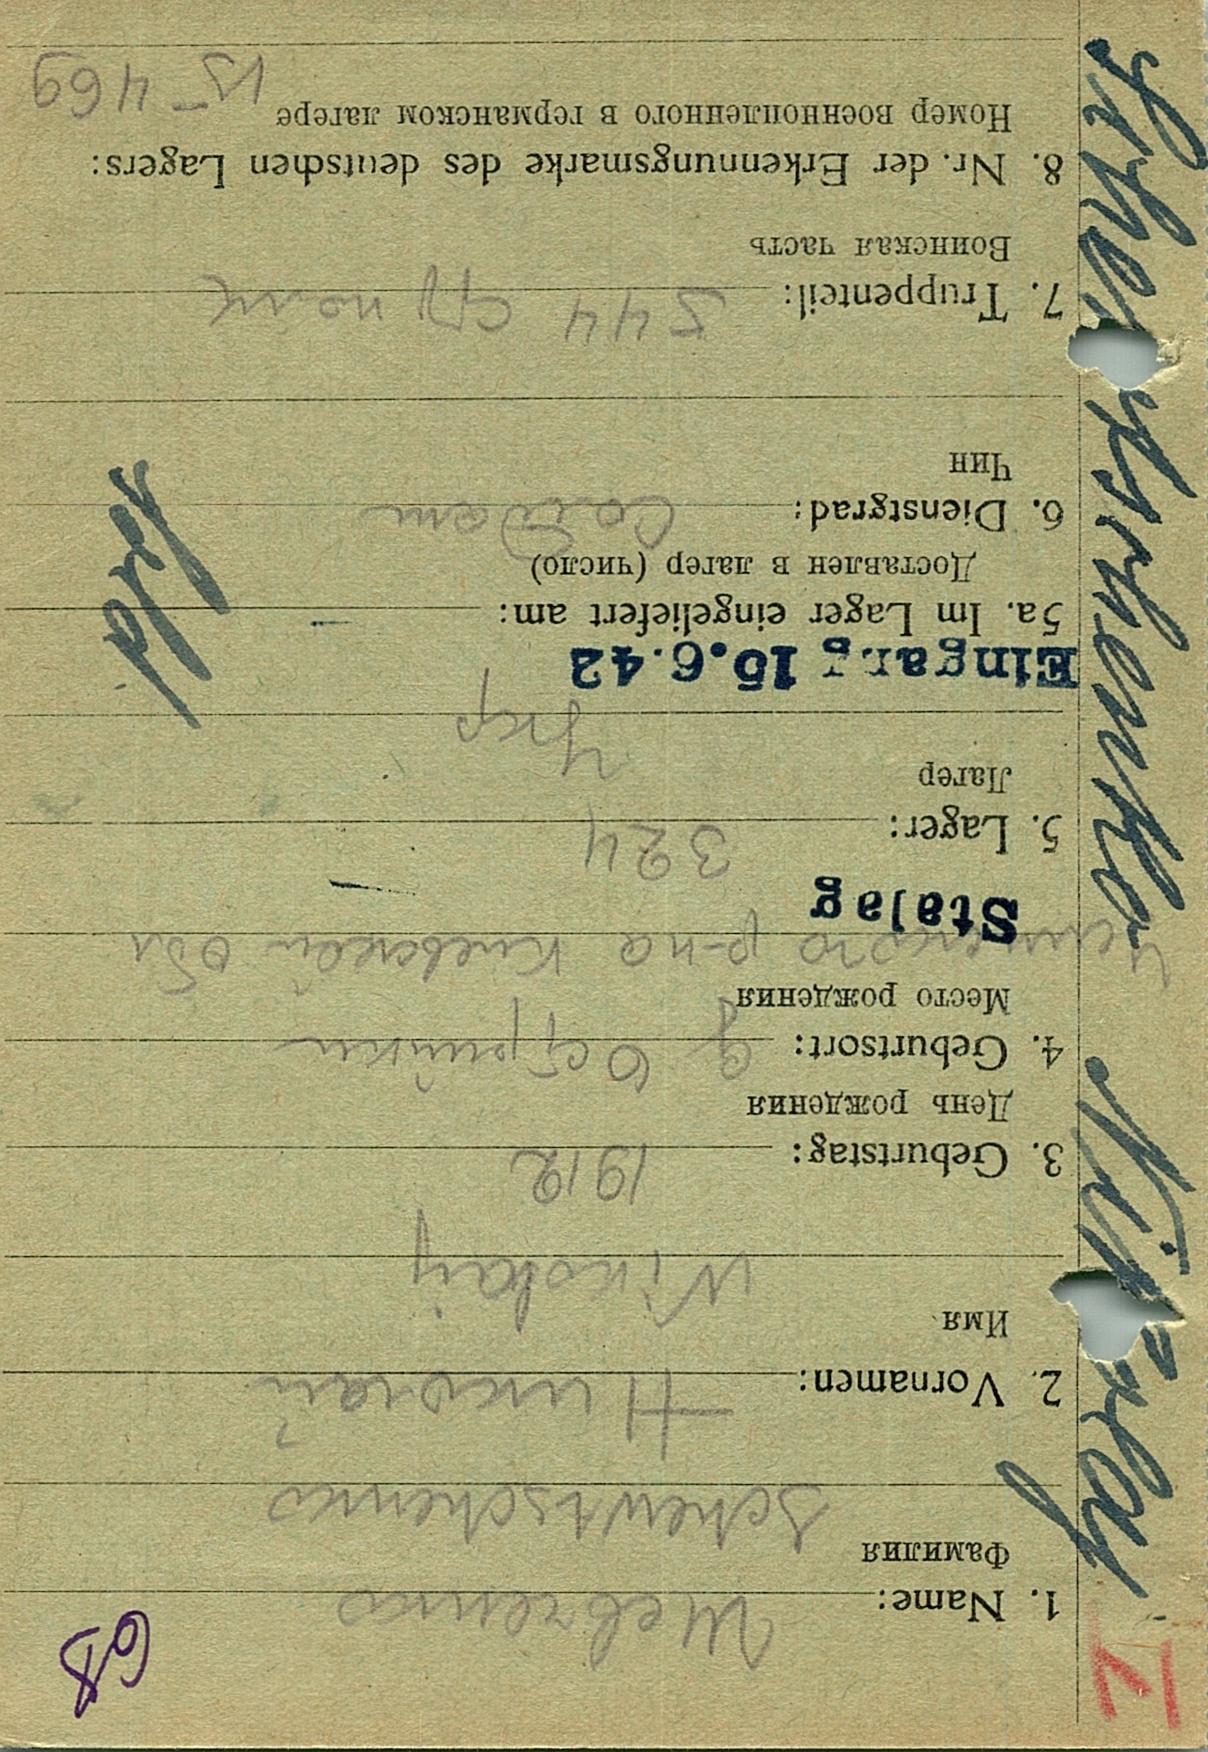 I
GB
1. Name: Шевченко
Фамилия
Schewtschenko
2. Vornamen: Николай
Имя
Nikolaij
3. Geburtstag: 1912
День рождения
4. Geburtsort: д
Место рождения
р-на Киевской Обл
Stalag
5. Lager: 324
Лагер
Укр
Eingang 15.6.42
5a. Im Lager eingeliefert am:
Доставлен в лагер (число)
6. Dienstgrad: Солдат
Чин
7. Truppenteil: 544 полк
Воинская часть
8. Nr. der Erkennungsmarke des deutschen Lagers:
Номер военнопленного в германском лагере
469
Nikolay